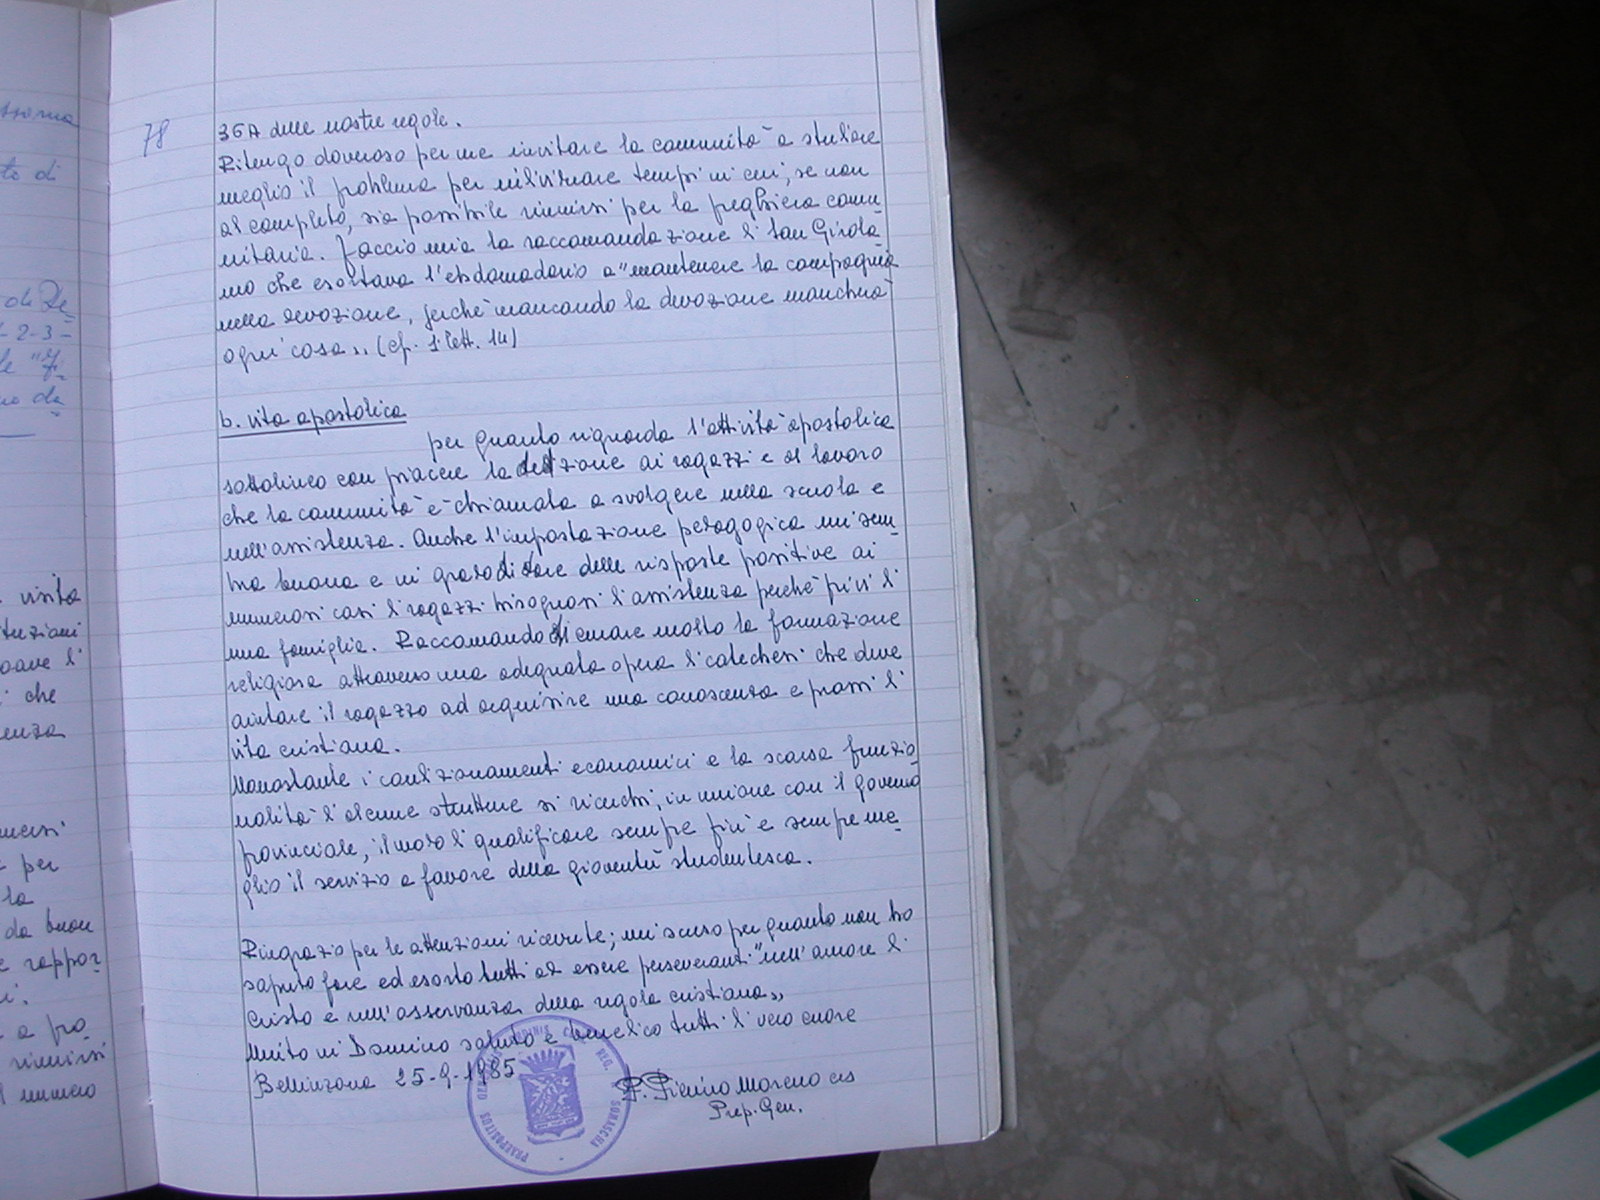 78
36A delle nostre regole.
Ritengo doveroso per me invitare la comunità a studiare
meglio il problema per individuare tempi in cui, se non
al completo, sia possibile riunirsi per la preghiera comu-
nitaria. Faccio mia la raccomandazione di San Girola-
mo che esortava l'ebdomadario a "mantenere la compagnia
nella devozione, perché mancando la devozione mancherà
ogni cosa,, (cf. 1ª lett. 14)
b. vita apostolica
per quanto riguarda l'attività apostolica
sottolineo con piacere la dedizione ai ragazzi e al lavoro
che la comunità è chiamata a svolgere nella scuola e
nell'assistenza. Anche l'impostazione pedagogica mi sem-
bra buona e in grado di dare delle risposte positive ai
numerosi casi di ragazzi bisognosi di assistenza perché privi di
una famiglia. Raccomando di curare molto la formazione
religiosa attraverso una adeguata opera di catechesi che deve
aiutare il ragazzo ad acquisire una conoscenza e prassi di
vita cristiana.
Nonostante i condizionamenti economici e la scarsa funzio-
nalità di alcune strutture si ricerchi, in unione con il governo
provinciale, il modo di qualificare sempre più e sempre me-
glio il servizio a favore della gioventù studentesca.
Ringrazio per le attenzioni ricevute; mi scuso per quanto non ho
saputo fare ed esorto tutti ad essere perseveranti "nell'amore di
Cristo e nell'osservanza della regola cristiana,,
Unito in Domino saluto e benedico tutti di vero cuore
Bellinzona 25-9-1985
P. Pierino Moreno crs
Prep. Gen.
PRAEPOSITUS ORDINIS CLER. REG. SOMASCHA